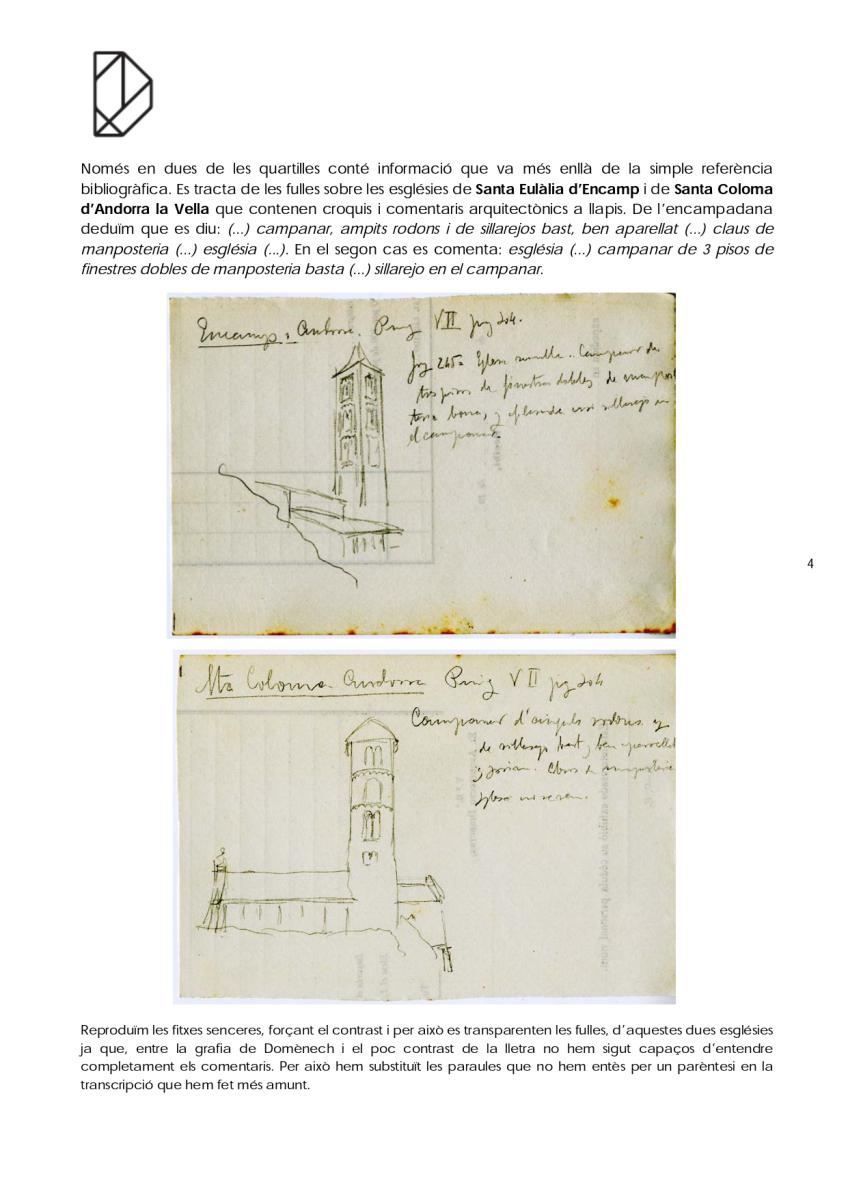 Només en dues de les quartilles conté informació que va més enllà de la simple referència
bibliogràfica. Es tracta de les fulles sobre les esglésies de Santa Eulàlia d'Encamp i de Santa Coloma
d'Andorra la Vella que contenen croquis i comentaris arquitectònics a llapis. De l'encampadana
deduïm que es diu: (...) campanar, ampits rodons i de sillarejos bast, ben aparellat (...) claus de
manposteria (...) església (...). En el segon cas es comenta: església (...) campanar de 3 pisos de
finestres dobles de manposteria basta (...) sillarejo en el campanar.
Encamp, Andorra. Puig VII pag 204.
Campanar de
tres pisos de finestres dobles de
el campanar
4
Sta Coloma Andorra Puig VII pg 204
Campanar d'anguls rodons y
de sillarejo bast y ben aparellat
Reproduïm les fitxes senceres, forçant el contrast i per això es transparenten les fulles, d'aquestes dues esglésies
ja que, entre la grafia de Domènech i el poc contrast de la lletra no hem sigut capaços d'entendre
completament els comentaris. Per això hem substituït les paraules que no hem entès per un parèntesi en la
transcripció que hem fet més amunt.